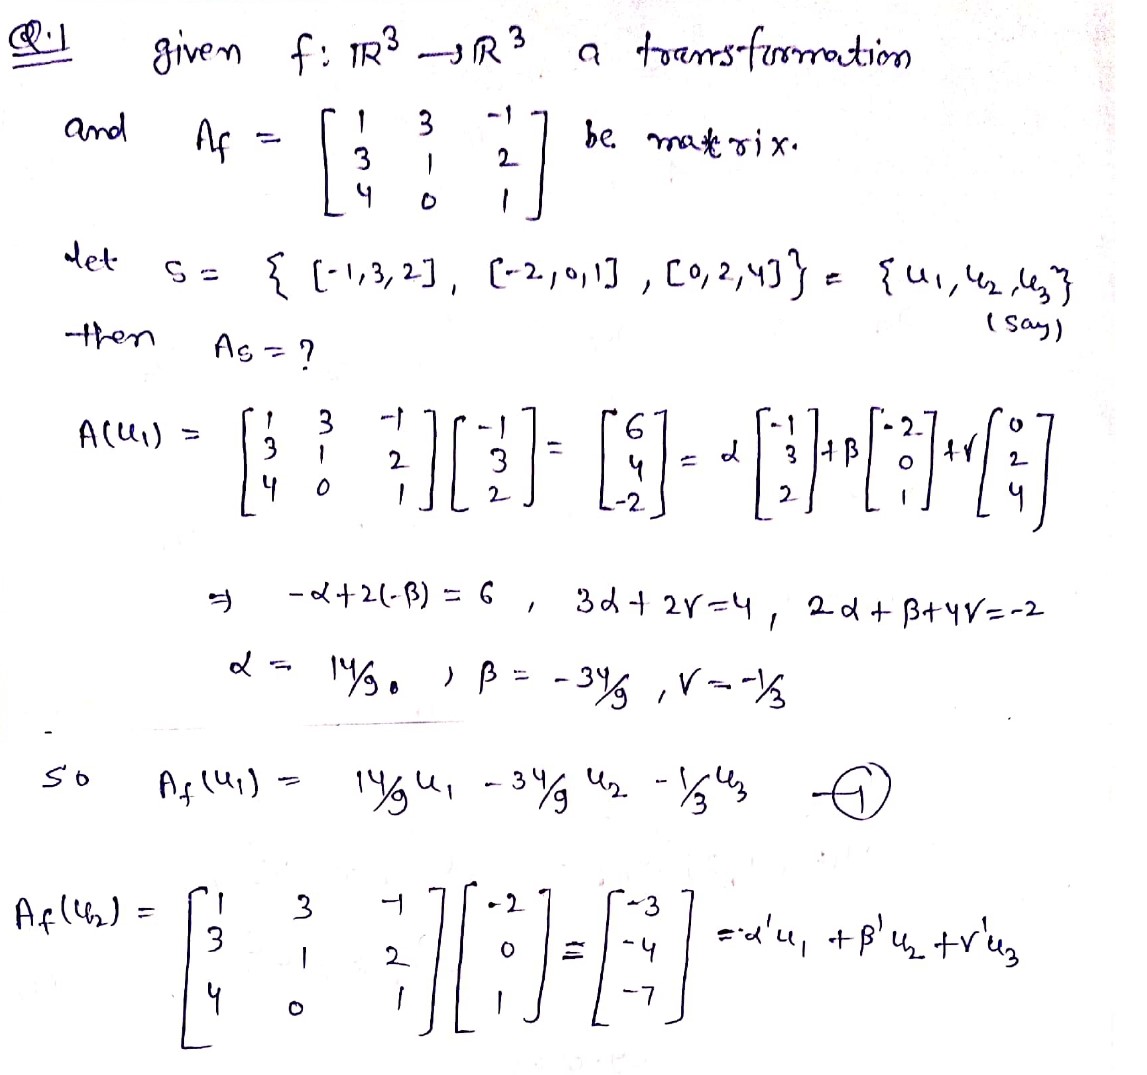 Q.1 given f: ℝ³ → ℝ³ a transformation
and A_f = [1 3 -1; 3 1 2; 4 0 1] be matrix.
let S = { [-1,3,2], [-2,0,1], [0,2,4]} = {u₁, u₂, u₃}
(say)
then A_S = ?
A(u₁) = [1 3 -1; 3 1 2; 4 0 1] [-1; 3; 2] = [6; 4; -2] = α [-1; 3; 2] + β [-2; 0; 1] + γ [0; 2; 4]
⇒ -α + 2(-β) = 6 , 3α + 2γ = 4 , 2α + β + 4γ = -2
α = 14/9 , β = -34/9 , γ = -1/3
so A_f(u₁) = 14/9 u₁ - 34/9 u₂ - 1/3 u₃ —①
A_f(u₂) = [1 3 -1; 3 1 2; 4 0 1] [-2; 0; 1] = [-3; -4; -7] = α'u₁ + β'u₂ + γ'u₃